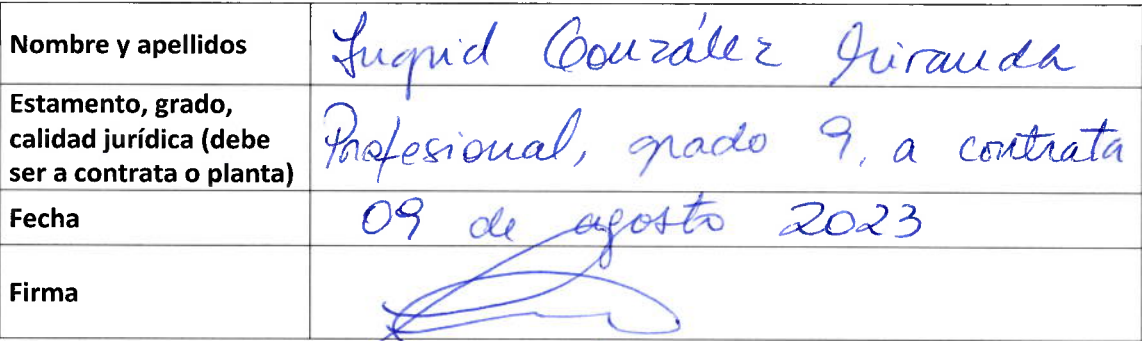 Nombre y apellidos Ingrid González Miranda
Estamento, grado,
calidad jurídica (debe
ser a contrata o planta) Profesional, grado 9, a contrata
Fecha 09 de agosto 2023
Firma